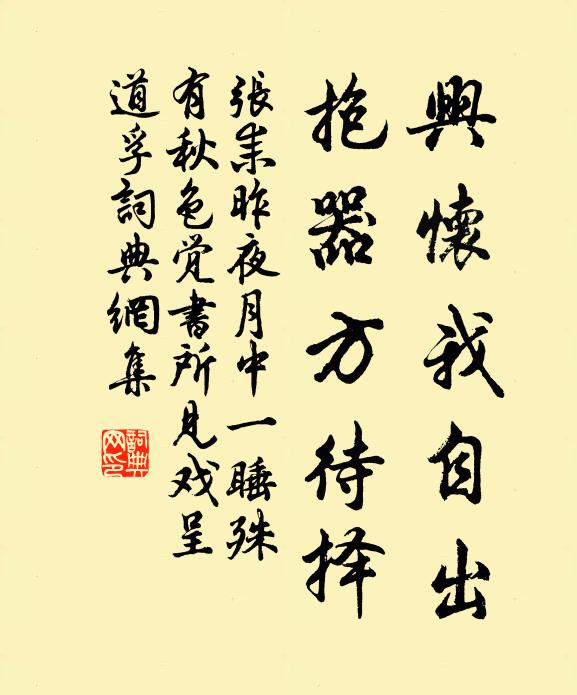 興懷我自出
抱器方待择
張耒昨夜月中一睡殊
有秋色觉書所見戏呈
道孚詞典網集
詞典
网印